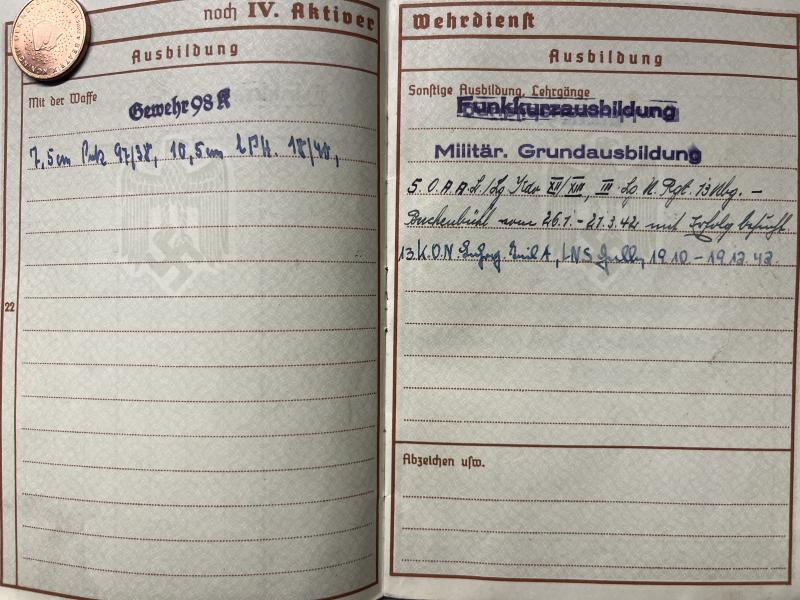 noch IV. Aktiver
Ausbildung
Mit der Waffe
Gewehr 98 K
7,5 cm Pak 97/38, 10,5 cm l.F.H. 18/40,
22
Wehrdienst
Ausbildung
Sonstige Ausbildung, Lehrgänge
Funkkurzausbildung
Militär. Grundausbildung
5. O.A.A.L./Lg. XII/XIII, III. Lg. N. Rgt. 13 Nbg. -
Buchenbühl vom 26.1. - 21.3.42 mit Erfolg besucht
13. K.O.N. A, LNS Halle, 19.10 - 19.12.42
Abzeichen usw.